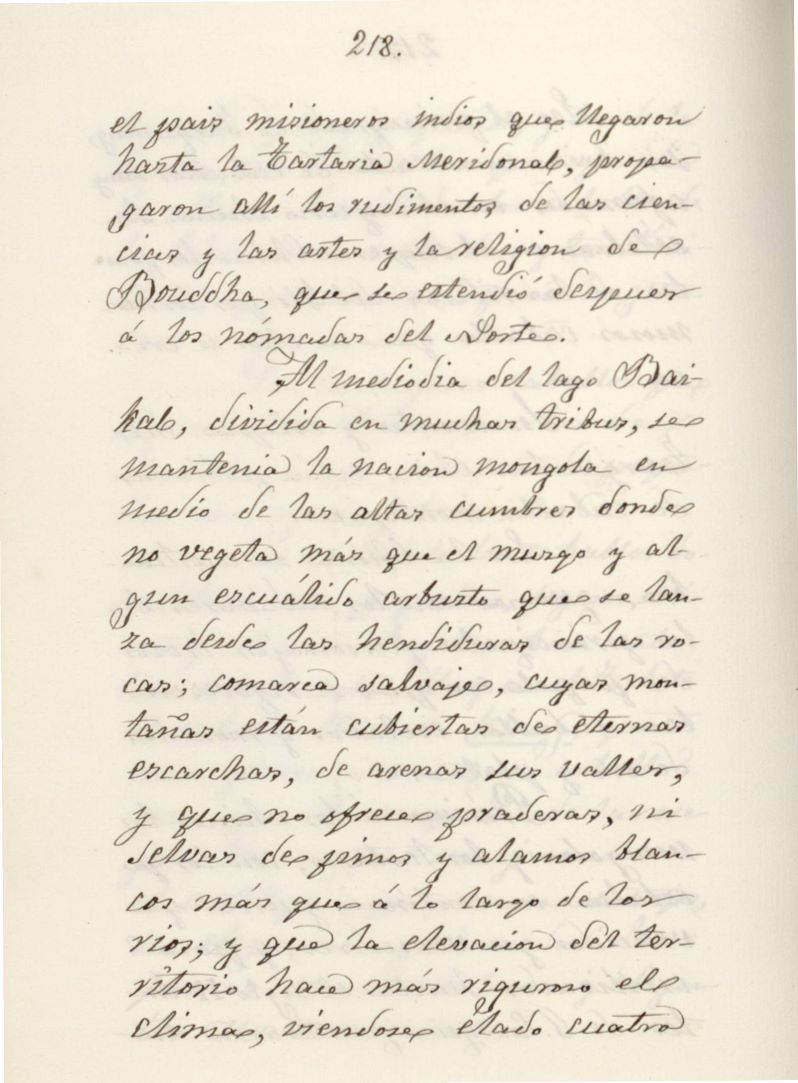 218.
el pais misioneros indios que llegaron
hasta la Tartaria Meridonal, propa-
garon allí los rudimentos de las cien-
cias y las artes y la religion de
Bouddha, que se estendió despues
á los nómadas del Norte.
Al mediodia del lago Bai-
kal, dividida en muchas tribus, se
mantenia la nacion mongola en
medio de las altas cumbres donde
no vegeta más que el musgo y al-
gun escuálido arbusto que se lan-
za desde las hendiduras de las ro-
cas; comarca salvaje, cuyas mon-
tañas están cubiertas de eternas
escarchas, de arenas sus valles,
y que no ofrece praderas, ni
selvas de pinos y alamos blan-
cos más que á lo largo de los
rios; y que la elevacion del ter-
ritorio hace más riguroso el
clima, viendose elado cuatro